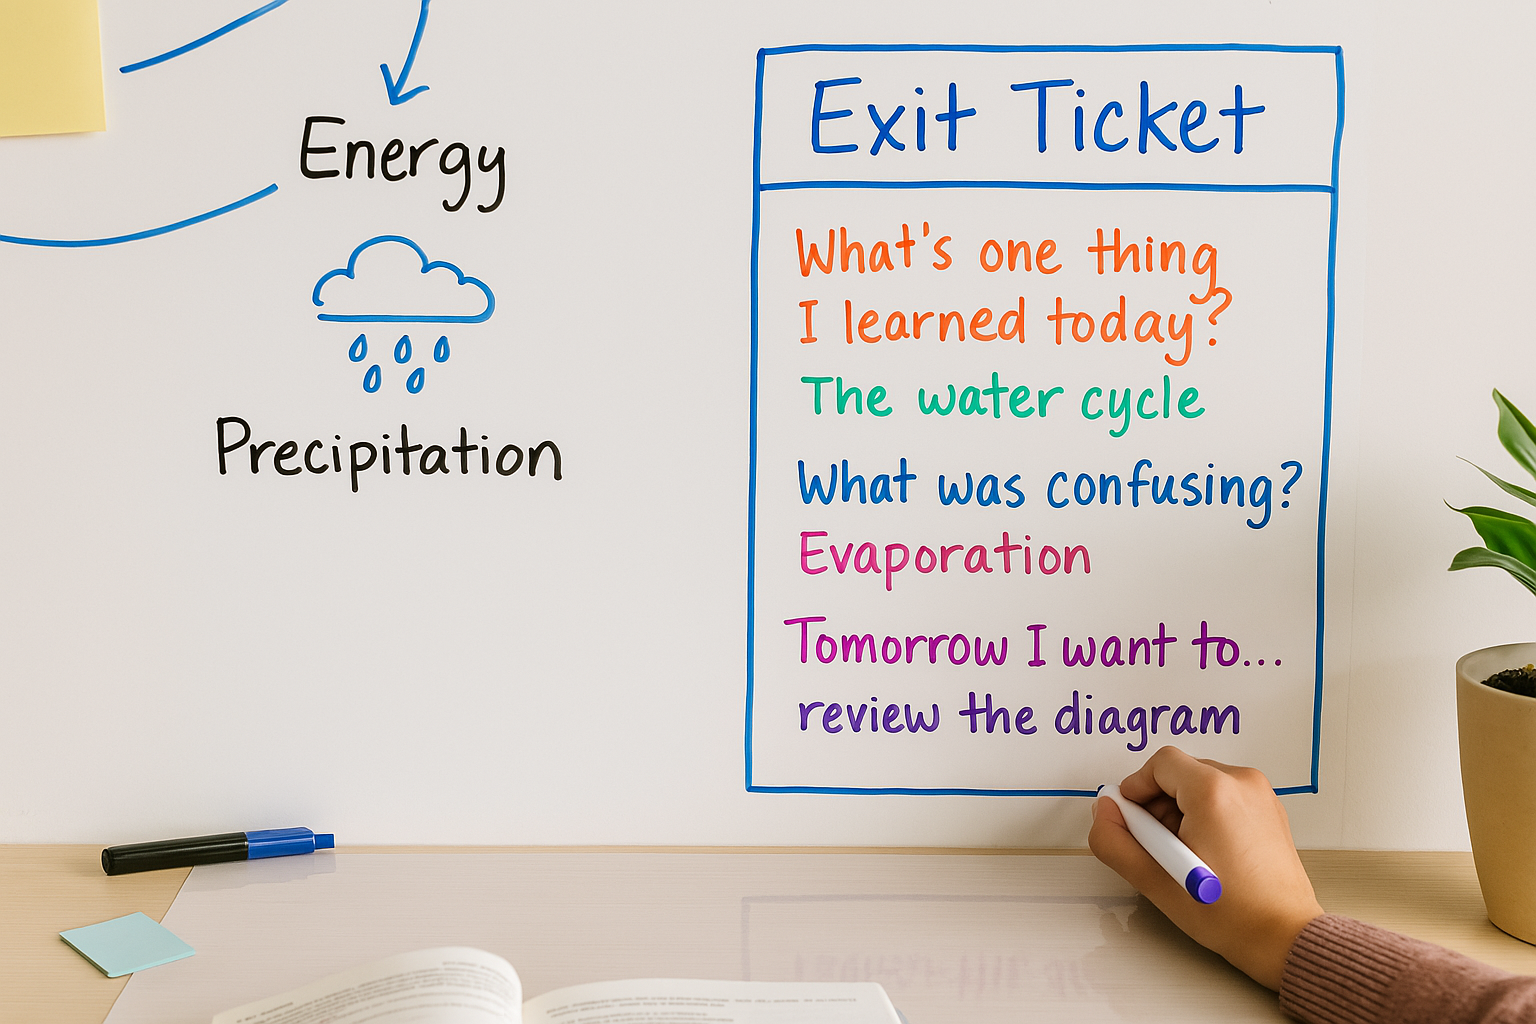 Energy
Precipitation
Exit Ticket
What's one thing
I learned today?
The water cycle
What was confusing?
Evaporation
Tomorrow I want to...
review the diagram